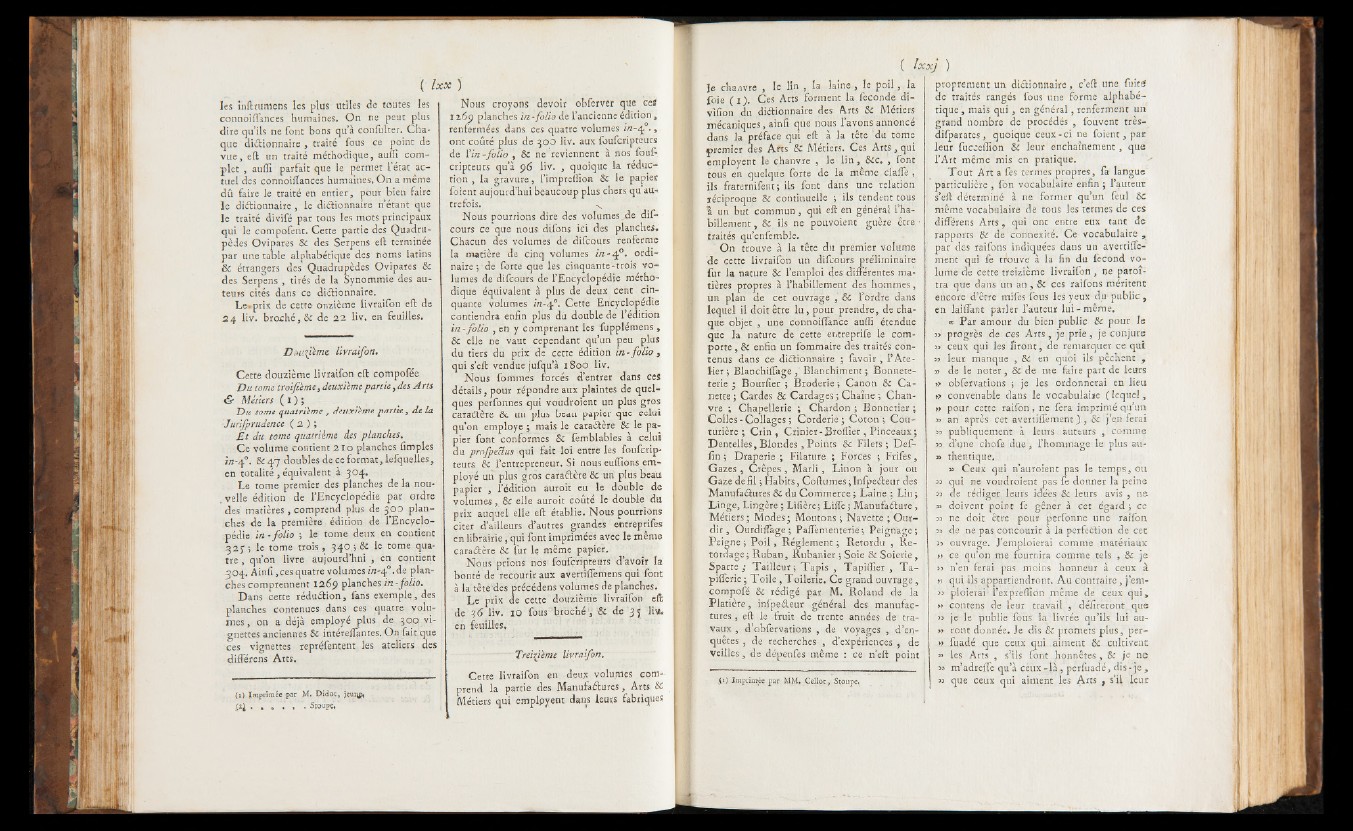 ( lxx )
les inſtrumens les plus utiles de toutes les
connoiſſances humaines. On ne peut plus
dire qu'ils ne ſont bons qu'à conſulter. Cha-
que dictionnaire , traité ſous ce point de
vue, eſt un traité méthodique, auſſi com-
plet , auſſi parfait que le permet l'état ac-
tuel des connoiſſances humaines. On a même
dû faire le traité en entier, pour bien faire
le dictionnaire, le dictionnaire n'étant que
le traité diviſé par tous les mots principaux
qui le compoſent. Cette partie des Quadru-
pèdes Ovipares & des Serpens eſt terminée
par une table alphabétique des noms latins
& étrangers des Quadrupèdes Ovipares &
des Serpens , tirés de la Synonymie des au-
teurs cités dans ce dictionnaire.
Le prix de cette onzième livraiſon eſt de
24 liv. broché, & de 22 liv. en feuilles.
Douzième livraiſon.
Cette douzième livraiſon eſt compoſée
Du tome troiſième, deuxième partie, des Arts
& Métiers (1);
Du tome quatrième , deuxième partie, de la
Juriſprudence ( 2 ) ;
Et du tome quatrième des planches.
Ce volume contient 210 planches ſimples
in-4°. & 47 doubles de ce format, leſquelles,
en totalité, équivalent à 304.
Le tome premier des planches de la nou-
velle édition de l'Encyclopédie par ordre
des matières , comprend plus de 300 plan-
ches de la première édition de l'Encyclo-
pédie in-folio ; le tome deux en contient
325 ; le tome trois , 340 ; & le tome qua-
tre , qu'on livre aujourd'hui , en contient
304. Ainſi, ces quatre volumes in-4°. de plan-
ches comprennent 1269 planches in-folio.
Dans cette réduction, ſans exemple, des
planches contenues dans ces quatre volu-
mes , on a déjà employé plus de 300 vi-
gnettes anciennes & intéreſſantes. On ſait que
ces vignettes repréſentent les ateliers des
différens Arts.
(1) Imprimée par M. Didot, jeune.
(2) . . . . . . Stoupe.
Nous croyons devoir obſerver que ces
1269 planches in-folio de l'ancienne édition,
renfermées dans ces quatre volumes in-4°.,
ont coûté plus de 300 liv. aux ſouſcripteurs
de l'in-folio , & ne reviennent à nos ſouſ-
cripteurs qu'à 96 liv. , quoique la réduc-
tion , la gravure, l'impreſſion & le papier
ſoient aujourd'hui beaucoup plus chers qu'au-
trefois.
Nous pourrions dire des volumes de diſ-
cours ce que nous diſons ici des planches.
Chacun des volumes de diſcours renferme
la matière de cinq volumes in-4°. ordi-
naire ; de ſorte que les cinquante-trois vo-
lumes de diſcours de l'Encyclopédie métho-
dique équivalent à plus de deux cent cin-
quante volumes in-4°. Cette Encyclopédie
contiendra enfin plus du double de l'édition
in-folio , en y comprenant les ſupplémens ,
& elle ne vaut cependant qu'un peu plus
du tiers du prix de cette édition in-folio ,
qui s'eſt vendue juſqu'à 1800 liv.
Nous ſommes forcés d'entrer dans ces
détails, pour répondre aux plaintes de quel-
ques perſonnes qui voudroient un plus gros
caractère & un plus beau papier que celui
qu'on employe ; mais le caractère & le pa-
pier ſont conformes & ſemblables à celui
du proſpectus qui fait loi entre les ſouſcrip-
teurs & l'entrepreneur. Si nous euſſions em-
ployé un plus gros caractère & un plus beau
papier , l'édition auroit eu le double de
volumes , & elle auroit coûté le double du
prix auquel elle eſt établie. Nous pourrions
citer d'ailleurs d'autres grandes entrepriſes
en librairie, qui ſont imprimées avec le même
caractère & ſur le même papier.
Nous prions nos ſouſcripteurs d'avoir la
bonté de recourir aux avertiſſemens qui ſont
à la tête des précédens volumes de planches.
Le prix de cette douzième livraiſon eſt
de 36 liv. 10 ſous broché, & de 35 liv.
en feuilles.
Treizième livraiſon.
Cette livraiſon en deux volumes com-
prend la partie des Manufactures , Arts &
Métiers qui employent dans leurs fabriques
( lxxj )
le chanvre , le lin , la laine , le poil , la
ſoie (1). Ces Arts forment la ſeconde di-
viſion du dictionnaire des Arts & Métiers
mécaniques, ainſi que nous l'avons annoncé
dans la préface qui eſt à la tête du tome
premier des Arts & Métiers. Ces Arts, qui
employent le chanvre , le lin, &c. , ſont
tous en quelque ſorte de la même claſſe ,
ils fraterniſent ; ils ſont dans une relation
réciproque & continuelle ; ils tendent tous
à un but commun , qui eſt en général l'ha-
billement, & ils ne pouvoient guère être
traités qu'enſemble.
On trouve à la tête du premier volume
de cette livraiſon un diſcours préliminaire
ſur la nature & l'emploi des différentes ma-
tières propres à l'habillement des hommes,
un plan de cet ouvrage , & l'ordre dans
lequel il doit être lu, pour prendre, de cha-
que objet , une connoiſſance auſſi étendue
que la nature de cette entrepriſe le com-
porte, & enfin un ſommaire des traités con-
tenus dans ce dictionnaire ; ſavoir , l'Ate-
lier ; Blanchiſſage , Blanchiment ; Bonnete-
terie ; Bourſier ; Broderie ; Canon & Ca-
nette ; Cardes & Cardages ; Chaîne ; Chan-
vre ; Chapellerie ; Chardon ; Bonnetier ;
Colles-Collages ; Corderie ; Coton ; Cou-
turière ; Crin , Crinier-Broſſier , Pinceaux ;
Dentelles, Blondes , Points & Filets ; Deſ-
ſin ; Draperie ; Filature ; Forces ; Friſes,
Gazes , Crêpes , Marli , Linon à jour ou
Gaze de fil ; Habits, Coſtumes ; Inſpecteur des
Manufactures & du Commerce ; Laine ; Lin ;
Linge, Lingère ; Liſière ; Liſſe ; Manufacture ,
Métiers ; Modes ; Moutons ; Navette ; Our-
dir , Ourdiſſage ; Paſſementerie ; Peignage ;
Peigne ; Poil , Réglement ; Retordu , Re-
tordage ; Ruban, Rubanier ; Soie & Soierie,
Sparte ; Tailleur ; Tapis , Tapiſſier , Ta-
piſſerie ; Toile , Toilerie. Ce grand ouvrage ,
compoſé & rédigé par M. Roland de la
Platière , inſpecteur général des manufac-
tures , eſt le fruit de trente années de tra-
vaux , d'obſervations , de voyages , d'en-
quêtes , de recherches , d'expériences , de
veilles, de dépenſes même : ce n'eſt point
(1) Imprimée par MM. Cellot, Stoupe.
proprement un dictionnaire, c'eſt une ſuite
de traités rangés ſous une forme alphabé-
tique, mais qui, en général, renferment un
grand nombre de procédés , ſouvent très-
diſparates, quoique ceux-ci ne ſoient, par
leur ſucceſſion & leur enchaînement , que
l'Art même mis en pratique.
Tout Art a ſes termes propres, ſa langue
particulière , ſon vocabulaire enfin ; l'auteur
s'eſt déterminé à ne former qu'un ſeul &
même vocabulaire de tous les termes de ces
différens Arts , qui ont entre eux tant de
rapports & de connexité. Ce vocabulaire ,
par des raiſons indiquées dans un avertiſſe-
ment qui ſe trouve à la fin du ſecond vo-
lume de cette treizième livraiſon , ne paroî-
tra que dans un an , & ces raiſons méritent
encore d'être miſes ſous les yeux du public ,
en laiſſant parler l'auteur lui-même.
« Par amour du bien public & pour le
» progrès de ces Arts , je prie , je conjure
» ceux qui les liront, de remarquer ce qui
» leur manque , & en quoi ils pèchent ,
» de le noter , & de me faire part de leurs
» obſervations ; je les ordonnerai en lieu
» convenable dans le vocabulaire ( lequel ,
» pour cette raiſon, ne ſera imprimé qu'un
» an après cet avertiſſement ) , & j'en ferai
» publiquement à leurs auteurs , comme
» d'une choſe due , l'hommage le plus au-
» thentique.
» Ceux qui n'auroient pas le temps, ou
» qui ne voudroient pas ſe donner la peine
» de rédiger leurs idées & leurs avis , ne
» doivent point ſe gêner à cet égard ; ce
» ne doit être pour perſonne une raiſon
» de ne pas concourir à la perfection de cet
» ouvrage. J'emploierai comme matériaux
» ce qu'on me fournira comme tels , & je
» n'en ferai pas moins honneur à ceux à
» qui ils appartiendront. Au contraire, j'em-
» ploierai l'expreſſion même de ceux qui,
» contens de leur travail , déſireront que
» je le publie ſous la livrée qu'ils lui au-
» ront donnée. Je dis & promets plus, per-
» ſuadé que ceux qui aiment & cultivent
» les Arts , s'ils ſont honnêtes, & je ne
» m'adreſſe qu'à ceux-là, perſuadé, dis-je ,
» que ceux qui aiment les Arts , s'il leur